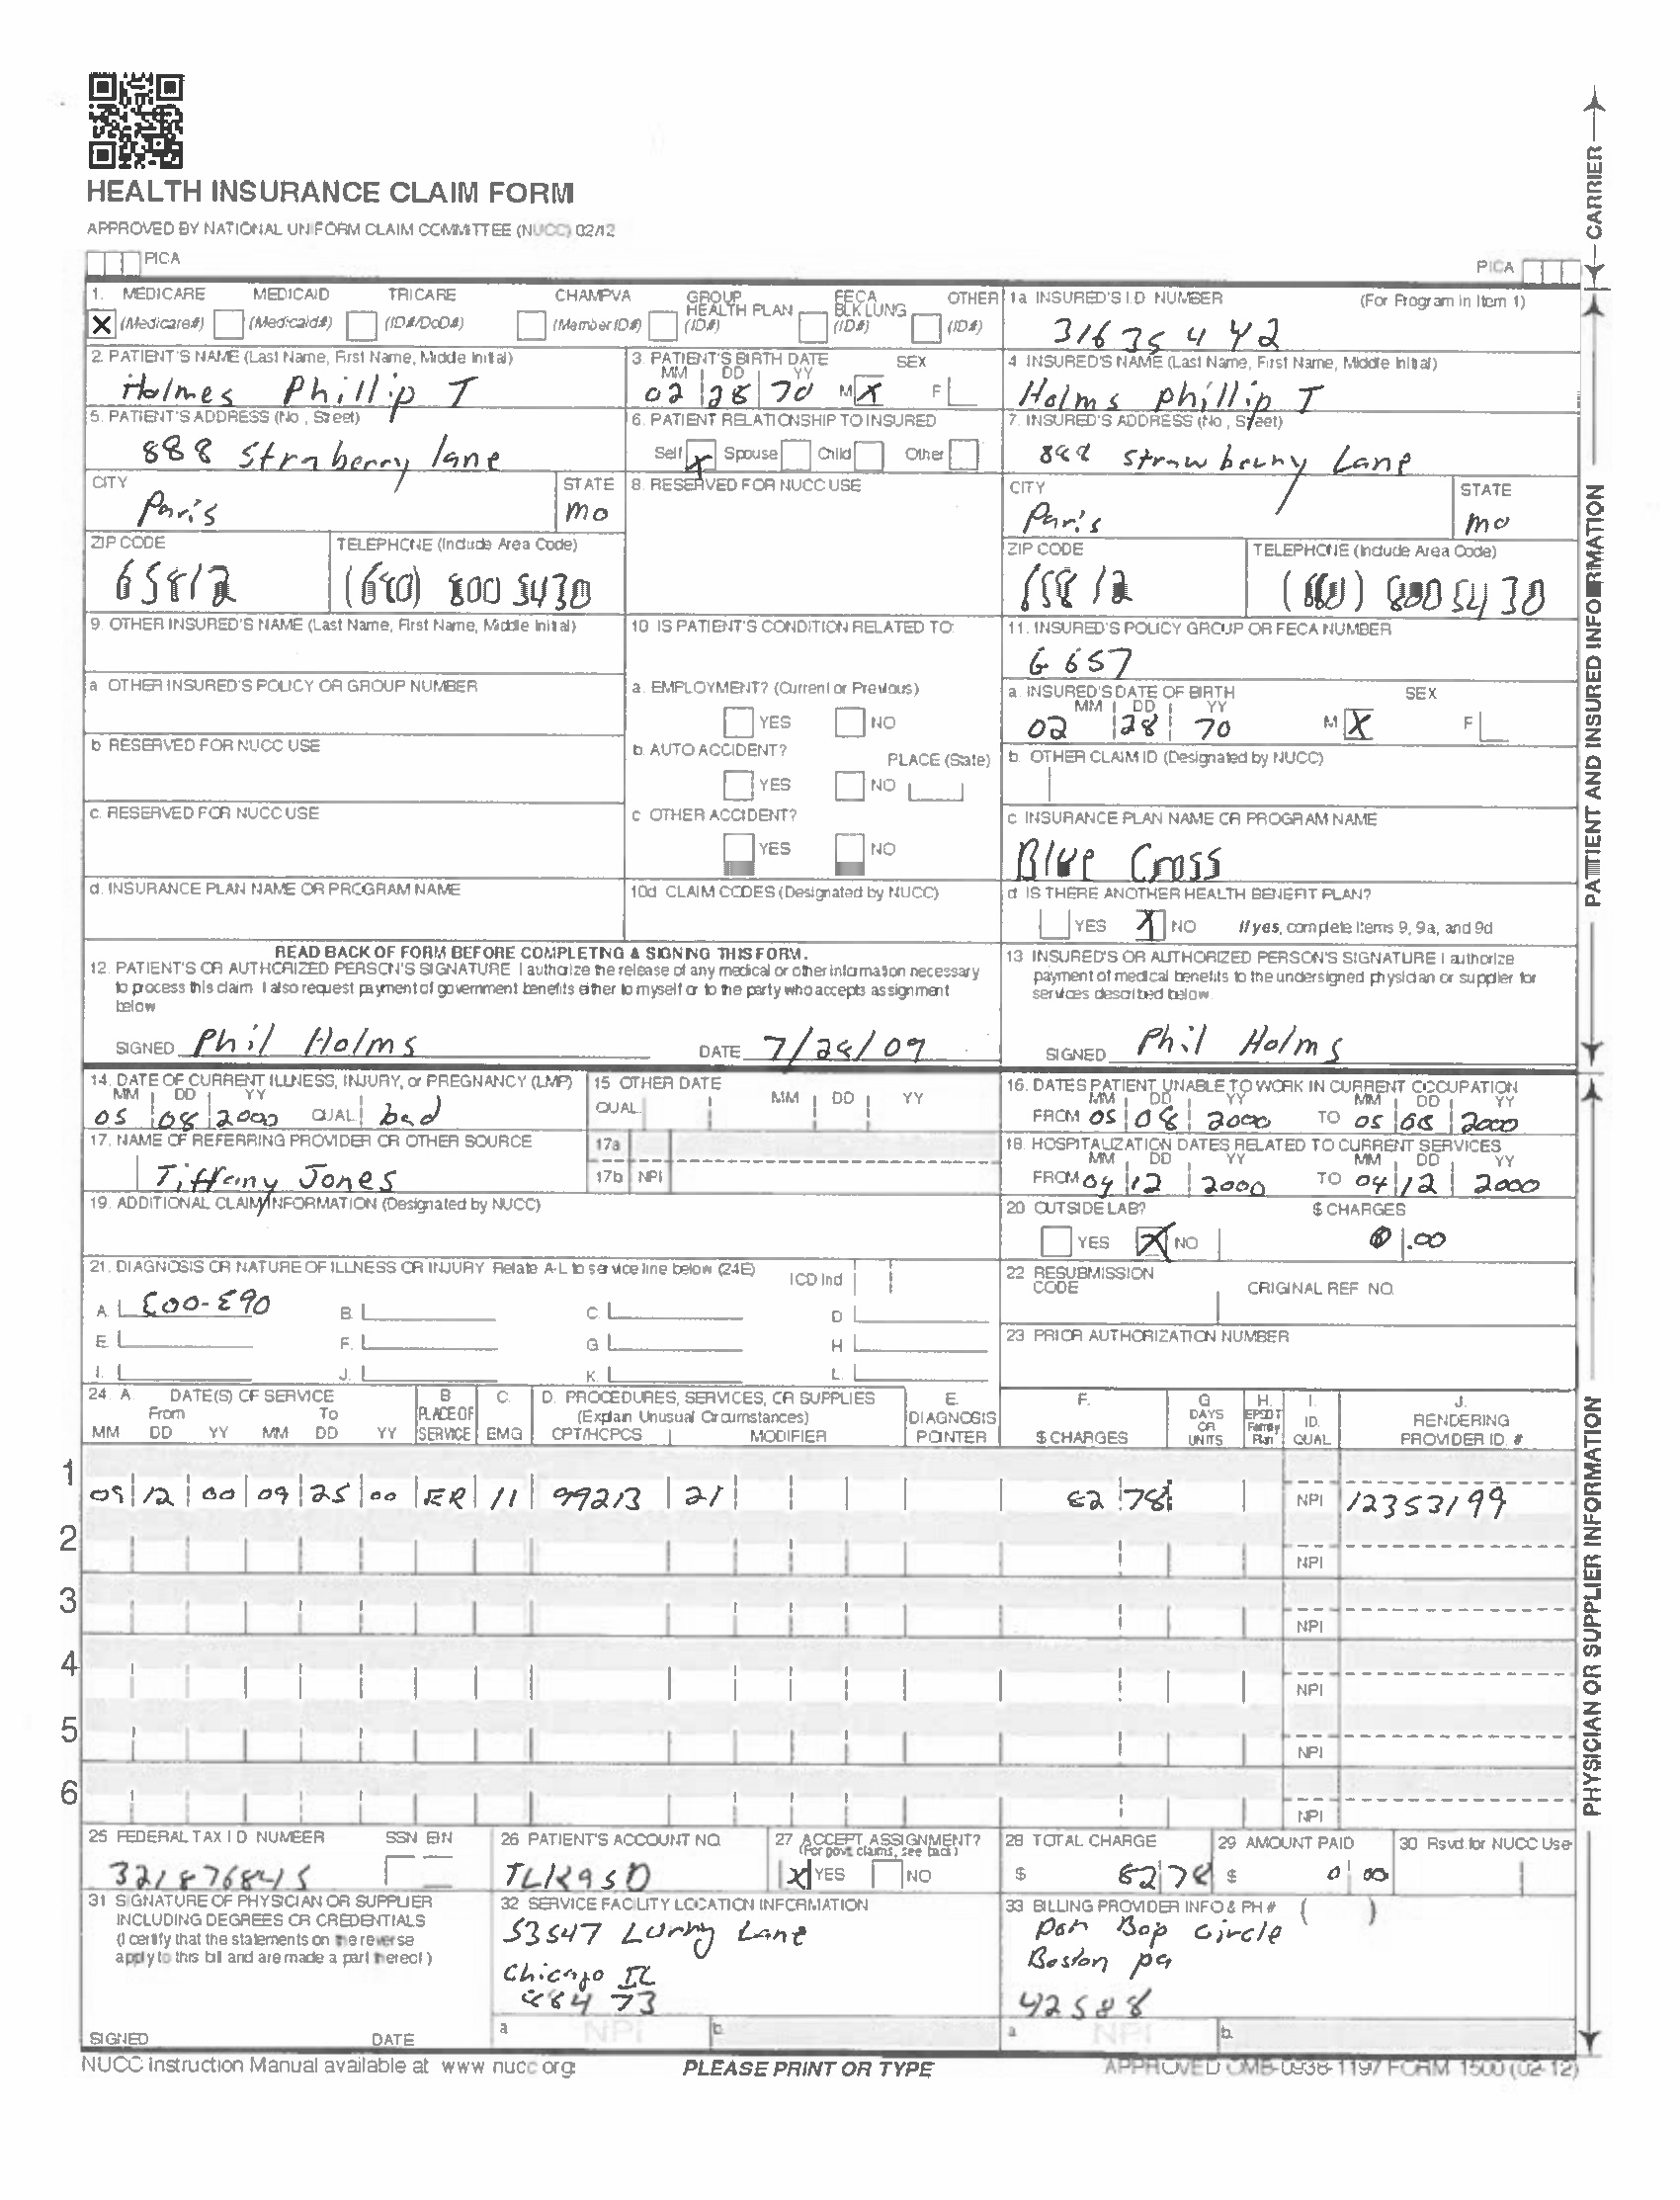 HEALTH INSURANCE CLAIM FORM
APPROVED BY NATIONAL UNIFORM CLAIM COMMITTEE (NUCC) 02/12
PICA
PICA
CARRIER
1. MEDICARE MEDICAID TRICARE CHAMPVA GROUP HEALTH PLAN FECA BLK LUNG OTHER
X (Medicare#) (Medicaid#) (ID#/DoD#) (Member ID#) (ID#) (ID#) (ID#)
1a INSURED'S I.D. NUMBER (For Program in Item 1)
31635442
2. PATIENT'S NAME (Last Name, First Name, Middle Initial)
Holmes Phillip T
3 PATIENT'S BIRTH DATE SEX
MM DD YY
02 28 70 M X F
4 INSURED'S NAME (Last Name, First Name, Middle Initial)
Holms Phillip T
5. PATIENT'S ADDRESS (No , Street)
888 Straberry lane
6. PATIENT RELATIONSHIP TO INSURED
Self X Spouse Child Other
7. INSURED'S ADDRESS (No , Street)
888 Strawberry Lane
CITY STATE
Paris mo
8. RESERVED FOR NUCC USE
CITY STATE
Paris mo
ZIP CODE TELEPHONE (Include Area Code)
65812 800 5430
ZIP CODE TELEPHONE (Include Area Code)
65812 800 5430
9. OTHER INSURED'S NAME (Last Name, First Name, Middle Initial)
10 IS PATIENT'S CONDITION RELATED TO:
11. INSURED'S POLICY GROUP OR FECA NUMBER
G 657
a OTHER INSURED'S POLICY OR GROUP NUMBER
a. EMPLOYMENT? (Current or Previous)
YES NO
a. INSURED'S DATE OF BIRTH SEX
MM DD YY
02 28 70 M X F
b RESERVED FOR NUCC USE
b AUTO ACCIDENT? PLACE (State)
YES NO
b. OTHER CLAIM ID (Designated by NUCC)
c. RESERVED FOR NUCC USE
c OTHER ACCIDENT?
YES NO
c INSURANCE PLAN NAME OR PROGRAM NAME
Blue Cross
d. INSURANCE PLAN NAME OR PROGRAM NAME
10d CLAIM CODES (Designated by NUCC)
d IS THERE ANOTHER HEALTH BENEFIT PLAN?
YES X NO If yes, complete Items 9, 9a, and 9d
READ BACK OF FORM BEFORE COMPLETING & SIGNING THIS FORM.
12. PATIENT'S OR AUTHORIZED PERSON'S SIGNATURE I authorize the release of any medical or other information necessary
to process this claim I also request payment of government benefits either to myself or to the party who accepts assignment
below
SIGNED Phil Holms DATE 7/28/09
13 INSURED'S OR AUTHORIZED PERSON'S SIGNATURE I authorize
payment of medical benefits to the undersigned physician or supplier for
services described below.
SIGNED Phil Holms
PATIENT AND INSURED INFORMATION
14. DATE OF CURRENT ILLNESS, INJURY, or PREGNANCY (LMP)
MM DD YY
05 08 2000 QUAL bad
15 OTHER DATE
QUAL MM DD YY
16. DATES PATIENT UNABLE TO WORK IN CURRENT OCCUPATION
MM DD YY MM DD YY
FROM 05 08 2000 TO 05 08 2000
17. NAME OF REFERRING PROVIDER OR OTHER SOURCE
Tiffany Jones
17a
17b NPI
18. HOSPITALIZATION DATES RELATED TO CURRENT SERVICES
MM DD YY MM DD YY
FROM 04 12 2000 TO 04 12 2000
19. ADDITIONAL CLAIM INFORMATION (Designated by NUCC)
20 OUTSIDE LAB? $ CHARGES
YES X NO .00
21. DIAGNOSIS OR NATURE OF ILLNESS OR INJURY Relate A-L to service line below (24E) ICD Ind
A. E00-E90 B. C. D.
E. F. G. H.
I. J. K. L.
22 RESUBMISSION
CODE ORIGINAL REF NO.
23 PRIOR AUTHORIZATION NUMBER
24. A. DATE(S) OF SERVICE B C. D. PROCEDURES, SERVICES, OR SUPPLIES E. F. G H. I. J.
From To PLACE OF (Explain Unusual Circumstances) DIAGNOSIS DAYS OR UNITS EPSDT Family Plan ID. RENDERING
MM DD YY MM DD YY SERVICE EMG CPT/HCPCS MODIFIER POINTER $ CHARGES QUAL PROVIDER ID. #
1
09 12 00 09 25 00 ER 11 99213 21 62 78 NPI 12353199
2
NPI
3
NPI
4
NPI
5
NPI
6
NPI
25 FEDERAL TAX I D NUMBER SSN EIN
321876845
26 PATIENT'S ACCOUNT NO.
27 ACCEPT ASSIGNMENT?
(For govt. claims, see back)
X YES NO
28 TOTAL CHARGE
$ 62 78
29 AMOUNT PAID
$ 0 00
30 Rsvd. for NUCC Use
31 SIGNATURE OF PHYSICIAN OR SUPPLIER
INCLUDING DEGREES OR CREDENTIALS
(I certify that the statements on the reverse
apply to this bill and are made a part thereof)
SIGNED DATE
32 SERVICE FACILITY LOCATION INFORMATION
53547 Lane
Chicago IL
88473
a NPI b.
33 BILLING PROVIDER INFO & PH # ( )
Bop Circle
Boston pa
42588
a NPI b.
PHYSICIAN OR SUPPLIER INFORMATION
NUCC Instruction Manual available at www nucc org
PLEASE PRINT OR TYPE
APPROVED OMB-0938-1197 FORM 1500 (02-12)